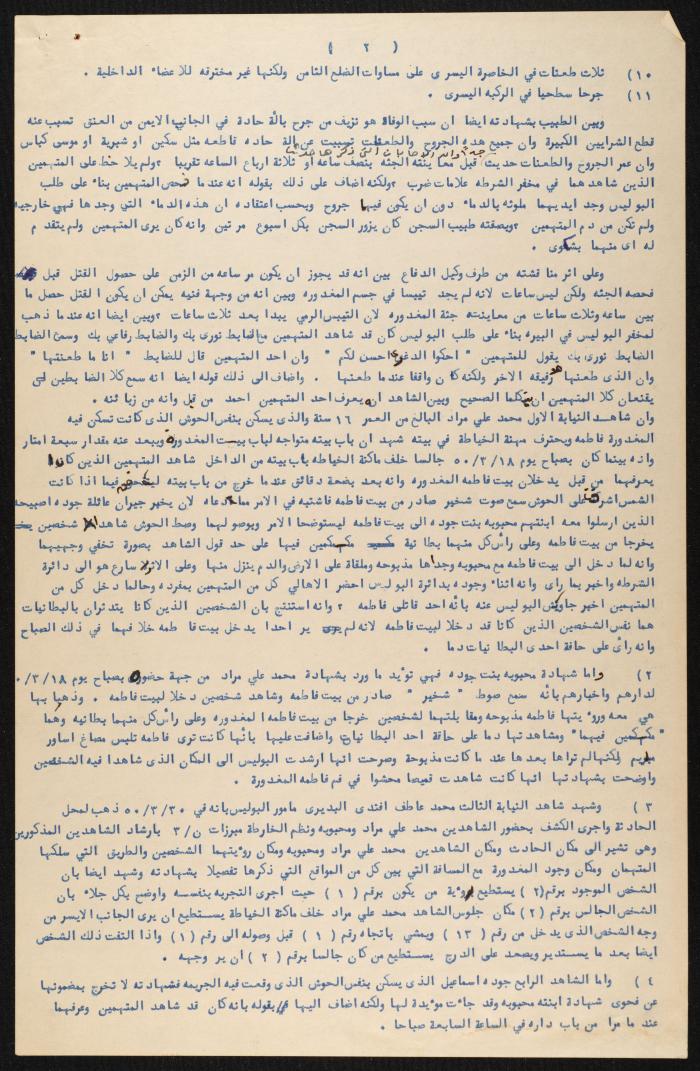 ( ٢ )
١٠) ثلاث طعنات في الخاصرة اليسرى على مساوات الضلع الثامن ولكنها غير مخترقه للاعضاء الداخلية .
١١) جرحا سطحيا في الركبه اليسرى .
وبين الطبيب بشهادته ايضا ان سبب الوفاة هو نزيف من جرح بالة حادة في الجانب الايمن من العنق تسبب عنه
قطع الشرايين الكبيرة وان جميع هذه الجروح والطعنات تسببت عن الة حاده قاطعه مثل سكين او شبرية او موسى كباس
وان عمر الجروح والطعنات حديث قبل معاينته الجثه بنصف ساعه او ثلاثة ارباع الساعه تقريبا ؟ ولم يلاحظ على المتهمين
الذين شاهدهما في مخفر الشرطه علامات ضرب ؟ ولكنه اضاف على ذلك بقوله انه عندما فحص المتهمين بناء على طلب
البوليس وجد ايديهما ملوثه بالدماء دون ان يكون فيها جروح وبحسب اعتقاده ان هذه الدماء التي وجدها فهي خارجيه
ولم تكن من دم المتهمين ؟ وبصفته طبيب السجن كان يزور السجن بكل اسبوع مرتين وانه كان يرى المتهمين ولم يتقدم
له اى منهما بشكوى .
وعلى اثر مناقشته من طرف وكيل الدفاع بين انه قد يجوز ان يكون مر ساعه من الزمن على حصول القتل قبل
فحصه الجثه ولكن ليس ساعات لانه لم يجد تيبسا في جسم المغدوره وبين انه من وجهة فنيه يمكن ان يكون القتل حصل ما
بين ساعه وثلاث ساعات من معاينته جثة المغدوره لان التيبس الرمي يبدا بعد ثلاث ساعات ؟ وبين ايضا انه عندما ذهب
لمخفر البوليس في البيره بناء على طلب البوليس كان قد شاهد المتهمين مع الضابط نورى بك والضابط رفاعي بك وسمع الضابط
الضابط نورى بك يقول للمتهمين " احكوا الدغرى احسن لكم " وان احد المتهمين قال للضابط " انا ما طعنتها "
وان الذى طعنها هو رفيقه الاخر ولكنه كان واقفا عندما طعنها . واضاف الى ذلك قوله ايضا انه سمع كلا الضابطين
يقنعان كلا المتهمين ان يتكلما الصحيح وبين الشاهد انه يعرف احد المتهمين احمد من قبل وانه من زبائنه .
وان شاهد النيابة الاول محمد علي مراد البالغ من العمر ١٦ سنة والذى يسكن بنفس الحوش الذى كانت تسكن فيه
المغدورة فاطمه ويحترف مهنة الخياطة في بيته شهد ان باب بيته متواجه لباب بيت المغدورة ويبعد عنه مقدار سبعة امتار
وانه بينما كان بصباح يوم ٥٠/٣/١٨ جالسا خلف ماكنة الخياطه باب بيته من الداخل شاهد المتهمين الذين كان
يعرفهما من قبل يدخلان بيت فاطمه المغدوره وانه بعد بضعة دقائق عندما خرج من باب بيته فيما اذا كانت
الشمس اشرقت على الحوش سمع صوت شخير صادر من بيت فاطمه فاشتبه في الامر مما دعاه لان يخبر جيران عائلة جوده اصبيحه
الذين ارسلوا معه ابنتهم محبوبه بنت جوده الى بيت فاطمه ليستوضحا الامر وبوصولهما وصط الحوش شاهدا شخصين
يخرجا من بيت فاطمه وعلى راس كل منهما بطانية مكمكمين فيها على حد قول الشاهد بصورة تخفي وجهيهما
وانه لما دخل الى بيت فاطمه مع محبوبه وجداها مذبوحه وملقاة على الارض والدم ينزل منها وعلى الاثر سارع هو الى دائرة
الشرطه واخبر بما راى وانه اثناء وجوده بدائرة البوليس احضر الاهالي كل من المتهمين بمفرده وحالما دخل كل من
المتهمين اخبر جاويش البوليس عنه بانه احد قاتلي فاطمه ؟ وانه استنتج بان الشخصين الذين كانا يتدثران بالبطانيات
هما نفس الشخصين الذين كانا قد دخلا لبيت فاطمه لانه لم ير احدا يدخل بيت فاطمه خلافهما في ذلك الصباح
وانه رأى على حافة احدى البطانيات دما .
٢ ) واما شهادة محبوبه بنت جوده فهي تؤيد ما ورد بشهادة محمد علي مراد من جهة حضوره بصباح يوم ٥٠/٣/١٨
لدارهم واخبارهم بانه سمع صوط " شخير " صادر من بيت فاطمه وشاهد شخصين دخلا لبيت فاطمه . وذهابها
هي معه ورؤيتها فاطمه مذبوحه ومقابلتهما لشخصين خرجا من بيت فاطمه المغدوره وعلى راس كل منهما بطانيه وهما
" مكمكمين فيهما " ومشاهدتها دما على حافة احد البطانيات واضافت عليها بانها كانت ترى فاطمه تلبس مصاغ اساور
مباريم لكنها لم تراها بعدها عندما كانت مذبوحة وصرحت انها ارشدت البوليس الى المكان الذى شاهدا فيه الشخصين
واوضحت بشهادتها انها كانت شاهدت قميصا محشوا في فم فاطمه المغدورة .
٣ ) وشهد شاهد النيابة الثالث محمد عاطف افندى البديرى مامور البوليس بانه في ٥٠/٣/٣٠ ذهب لمحل
الحادثة واجرى الكشف بحضور الشاهدين محمد علي مراد ومحبوبه ونظم الخارطة مبرزات ن/٣ بارشاد الشاهدين المذكورين
وهى تشير الى مكان الحادث ومكان الشاهدين محمد علي مراد ومحبوبه ومكان رؤيتهما الشخصين والطريق التي سلكها
المتهمان ومكان وجود المغدورة مع المسافة التي بين كل من المواقع التي ذكرها تفصيلا بشهادته وشهد ايضا بان
الشخص الموجود برقم (٢ ) يستطيع رؤية من يكون برقم ( ١ ) حيث اجرى التجربه بنفسه واوضح بكل جلاء بان
الشخص الجالس برقم (٢ ) مكان جلوس الشاهد محمد علي مراد خلف ماكنة الخياطة يستطيع ان يرى الجانب الايسر من
وجه الشخص الذى يدخل من رقم ( ١٣ ) ويمشي باتجاه رقم ( ١ ) قبل وصوله الى رقم (١) واذا التفت ذلك الشخص
ايضا بعد ما يستدير ويصعد على الدرج يستطيع من كان جالسا برقم (٢ ) ان ير وجهه .
٤ ) واما الشاهد الرابع جوده اسماعيل الذى يسكن بنفس الحوش الذى وقعت فيه الجريمه فشهادته لا تخرج بمضمونها
عن فحوى شهادة ابنته محبوبه وقد جاءت مؤيدة لها ولكنه اضاف اليها بقوله بانه كان قد شاهد المتهمين وعرفهما
عندما مرا من باب داره في الساعة السابعة صباحا .